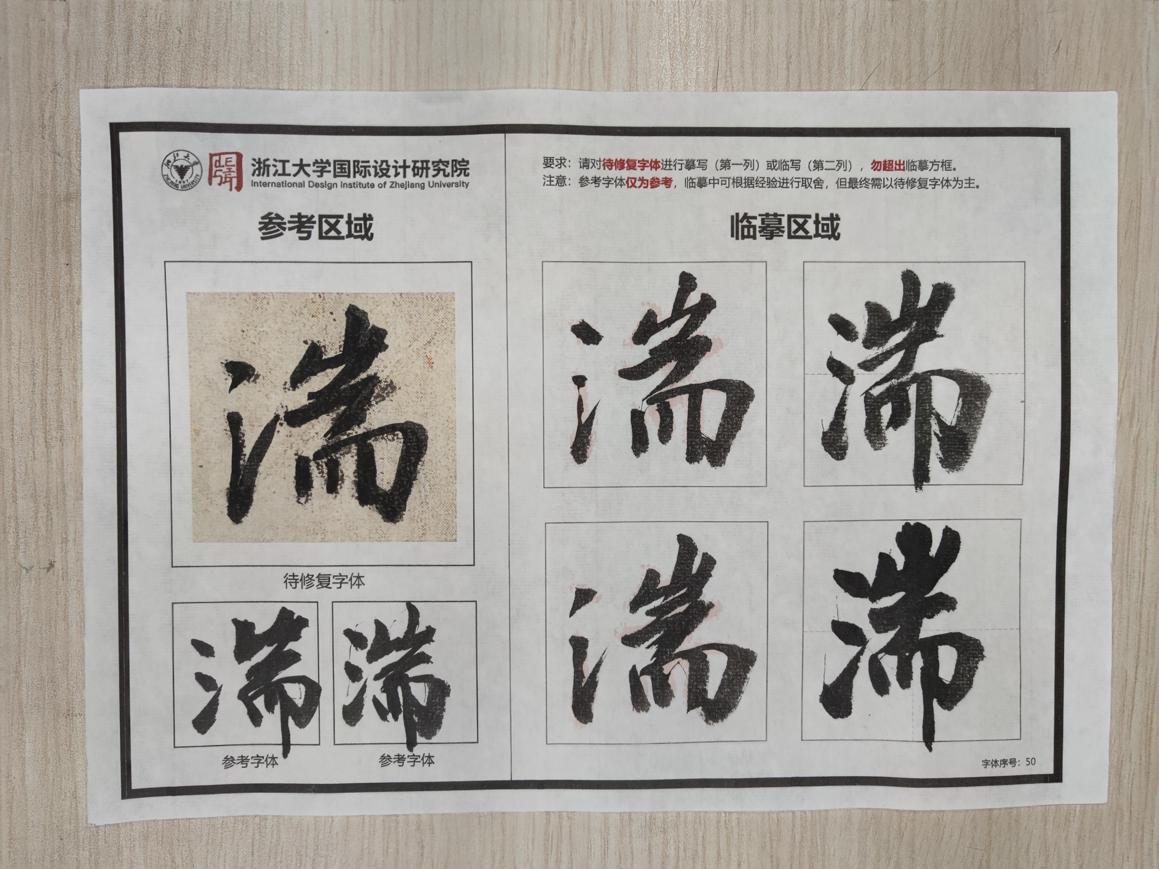 浙江大学国际设计研究院
International Design Institute of Zhejiang University
参考区域
湍
待修复字体
湍
湍
参考字体
参考字体
要求：请对待修复字体进行摹写（第一列）或临写（第二列），勿超出临摹方框。
注意：参考字体仅为参考，临摹中可根据经验进行取舍，但最终需以待修复字体为主。
临摹区域
湍
湍
湍
湍
字体序号：50